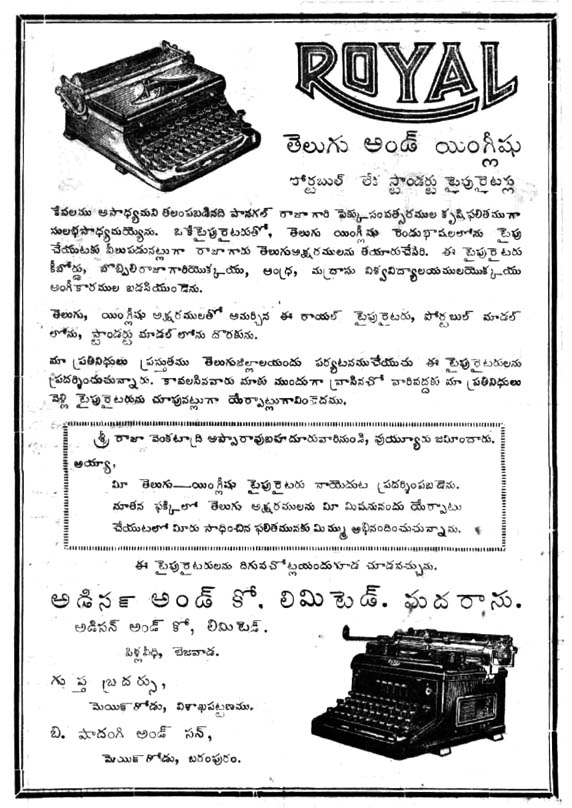 ROYAL
తెలుగు అండ్ యింగ్లీషు
పోర్టబుల్ లేక స్టాండర్డు టైపురైటర్లు
కేవలము అసాధ్యమని తలంపబడినది పానగల్ రాజా గారి పెక్కుసంవత్సరముల కృషిఫలితముగా
సులభసాధ్యమయ్యెను. ఒకేటైపురైటరుతో, తెలుగు యింగ్లీషు రెండుభాషలలోను టైపు
చేయుటకు వీలుపడునట్లుగా రాజాగారు తెలుగుఅక్షరములను తయారుచేసిరి. ఈ టైపురైటరు
కీబోర్డు, బొబ్బిలిరాజాగారియొక్కయు, ఆంధ్ర, మద్రాసు విశ్వవిద్యాలయములయొక్కయు
అంగీకారముల బడసియుండెను.
తెలుగు, యింగ్లీషు అక్షరములతో అమర్చిన ఈ రాయల్ టైపురైటరు, పోర్టబుల్ మాడల్
లోను, స్టాండర్డు మాడల్ లోను దొరకును.
మా ప్రతినిధులు ప్రస్తుతము తెలుగుజిల్లాలయందు పర్యటనముచేయుచు ఈ టైపురైటరులను
ప్రదర్శించుచున్నారు. కావలసినవారు మాకు ముందుగా వ్రాసినచో వారివద్దకు మా ప్రతినిధులు
వెళ్లి టైపురైటరును చూపునట్లుగా యేర్పాట్లుగావించెదము.
శ్రీ రాజా వెంకటాద్రి అప్పారావుబహదూరువారినుంచి, వుయ్యూరు జమీందారు.
అయ్యా,
మీ తెలుగు—యింగ్లీషు టైపురైటరు నాయెదుట ప్రదర్శింపబడెను.
నూతన ఫక్కీలో తెలుగు అక్షరములను మీ మిషనునందు యేర్పాటు
చేయుటలో మీరు సాధించిన ఫలితమునకు మిమ్ము అభినందించుచున్నాను.
ఈ టైపురైటరులను దిగువచోట్లయందుకూడ చూడవచ్చును.
అడిసన్ అండ్ కో. లిమిటెడ్. మదరాసు.
అడిసన్ అండ్ కో, లిమిటెడ్.
పిళ్లవీధి, బెజవాడ.
గుప్త బ్రదర్సు,
మెయిన్ రోడు, విశాఖపట్టణము.
బి. షాడంగి అండ్ సన్,
మెయిన్ రోడు, బరంపురం.